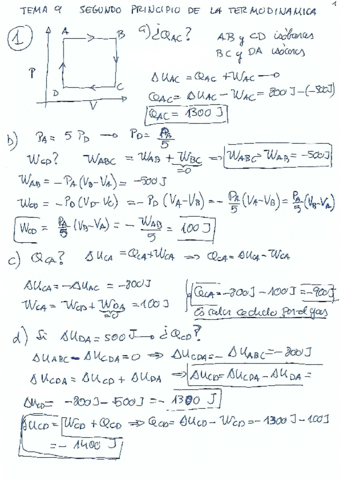 TEMA 9 SEGUNDO PRINCIPIO DE LA TERMODINAMICA 1
① a) ¿QAC? AB y CD isóbaras
BC y DA isócoras
A B
P
D C
V
ΔUAC = QAC + WAC →
QAC = ΔUAC - WAC = 800J - (-500J)
QAC = 1300J
b) PA = 5 PD → PD = PA/5
WCD? WABC = WAB + WBC ⇒ WABC = WAB = -500J
=0
WAB = -PA (VB-VA) = -500J
WCD = -PD (VD-VC) = -PD (VA-VB) = -PA/5 (VA-VB) = PA/5 (VB-VA)
WCD = PA/5 (VB-VA) = -WAB/5 = 100J
c) QCA? ΔUCA = QCA + WCA ⇒ QCA = ΔUCA - WCA
ΔUCA = -ΔUAC = -800J
QCA = -800J - 100J = -900J
WCA = WCD + WDA = 100J
=0
Es calor cedido por el gas
d) Si ΔUDA = 500J → ¿QCD?
ΔUABC - ΔUCDA = 0 ⇒ ΔUCDA = -ΔUABC = -800J
ΔUCDA = ΔUCD + ΔUDA ⇒ ΔUCD = ΔUCDA - ΔUDA =
ΔUCD = -800J - 500J = -1300 J
ΔUCD = WCD + QCD ⇒ QCD = ΔUCD - WCD = -1300J - 100J
= -1400 J